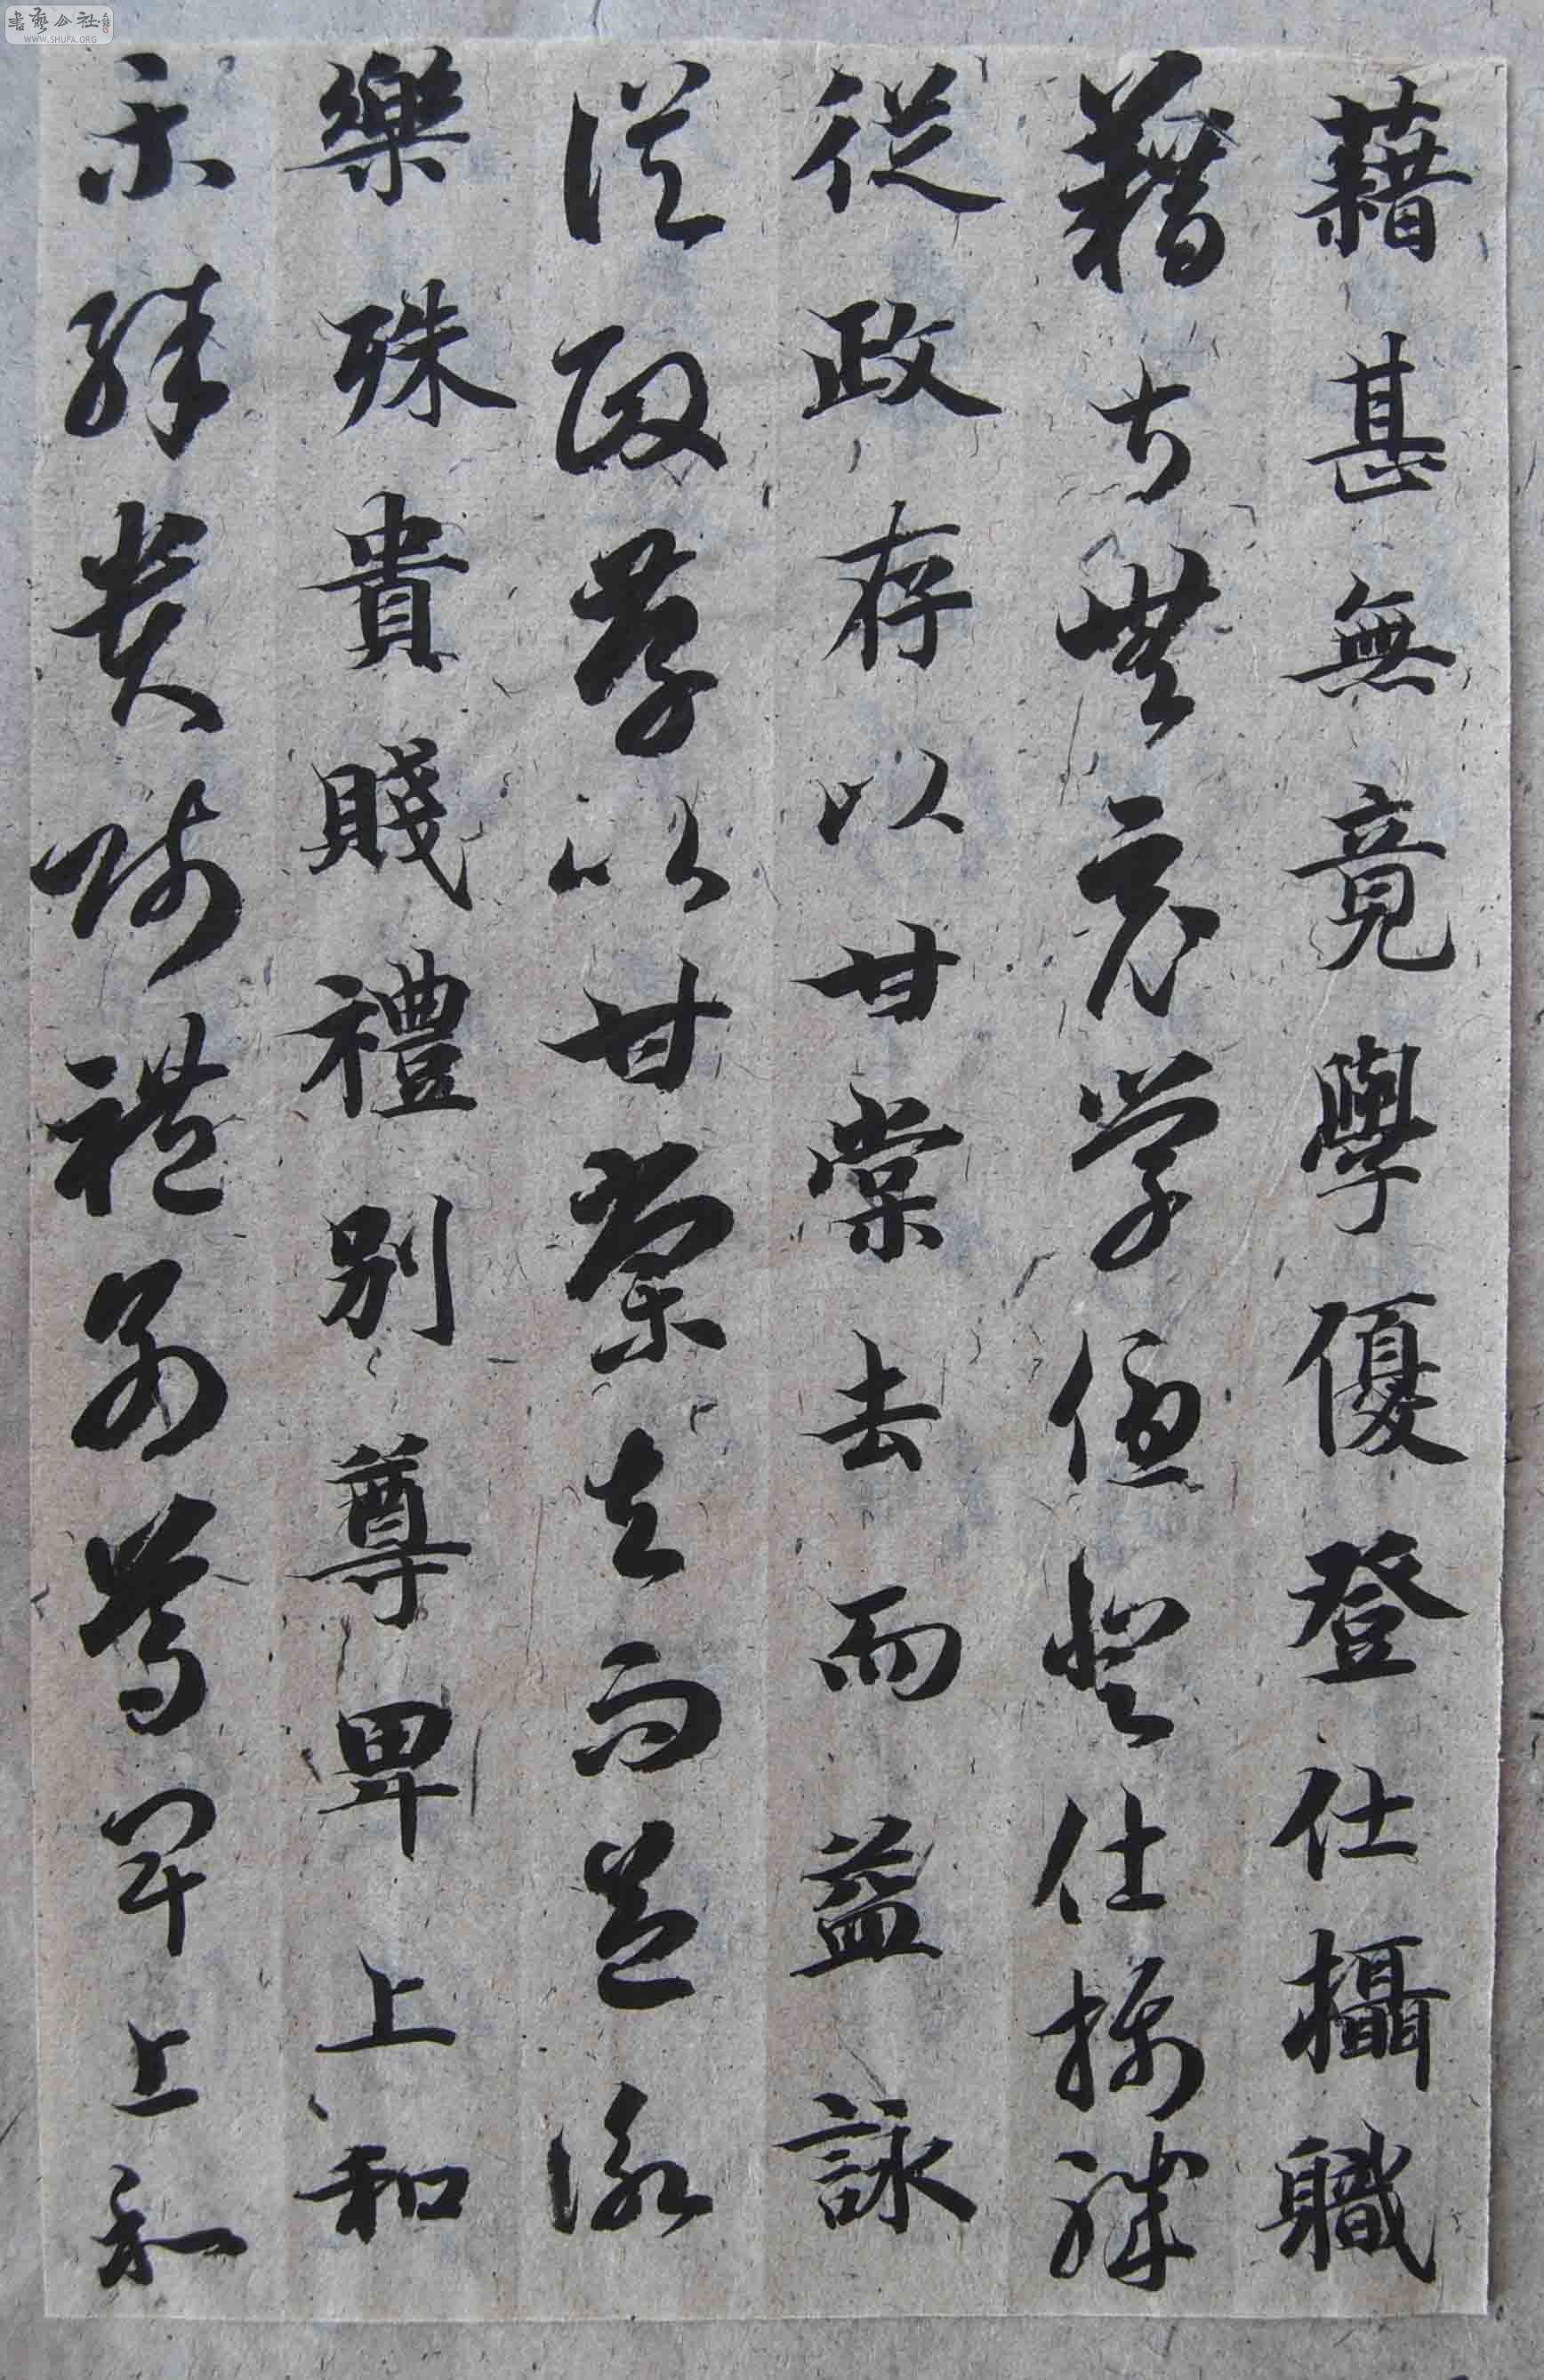 藉甚無竟學優登仕攝職
藉甚無竟學優登仕攝職
從政存以甘棠去而益詠
從政存以甘棠去而益詠
樂殊貴賤禮別尊卑上和
樂殊貴賤禮別尊卑上和
書藝公社
WWW.SHUFA.ORG